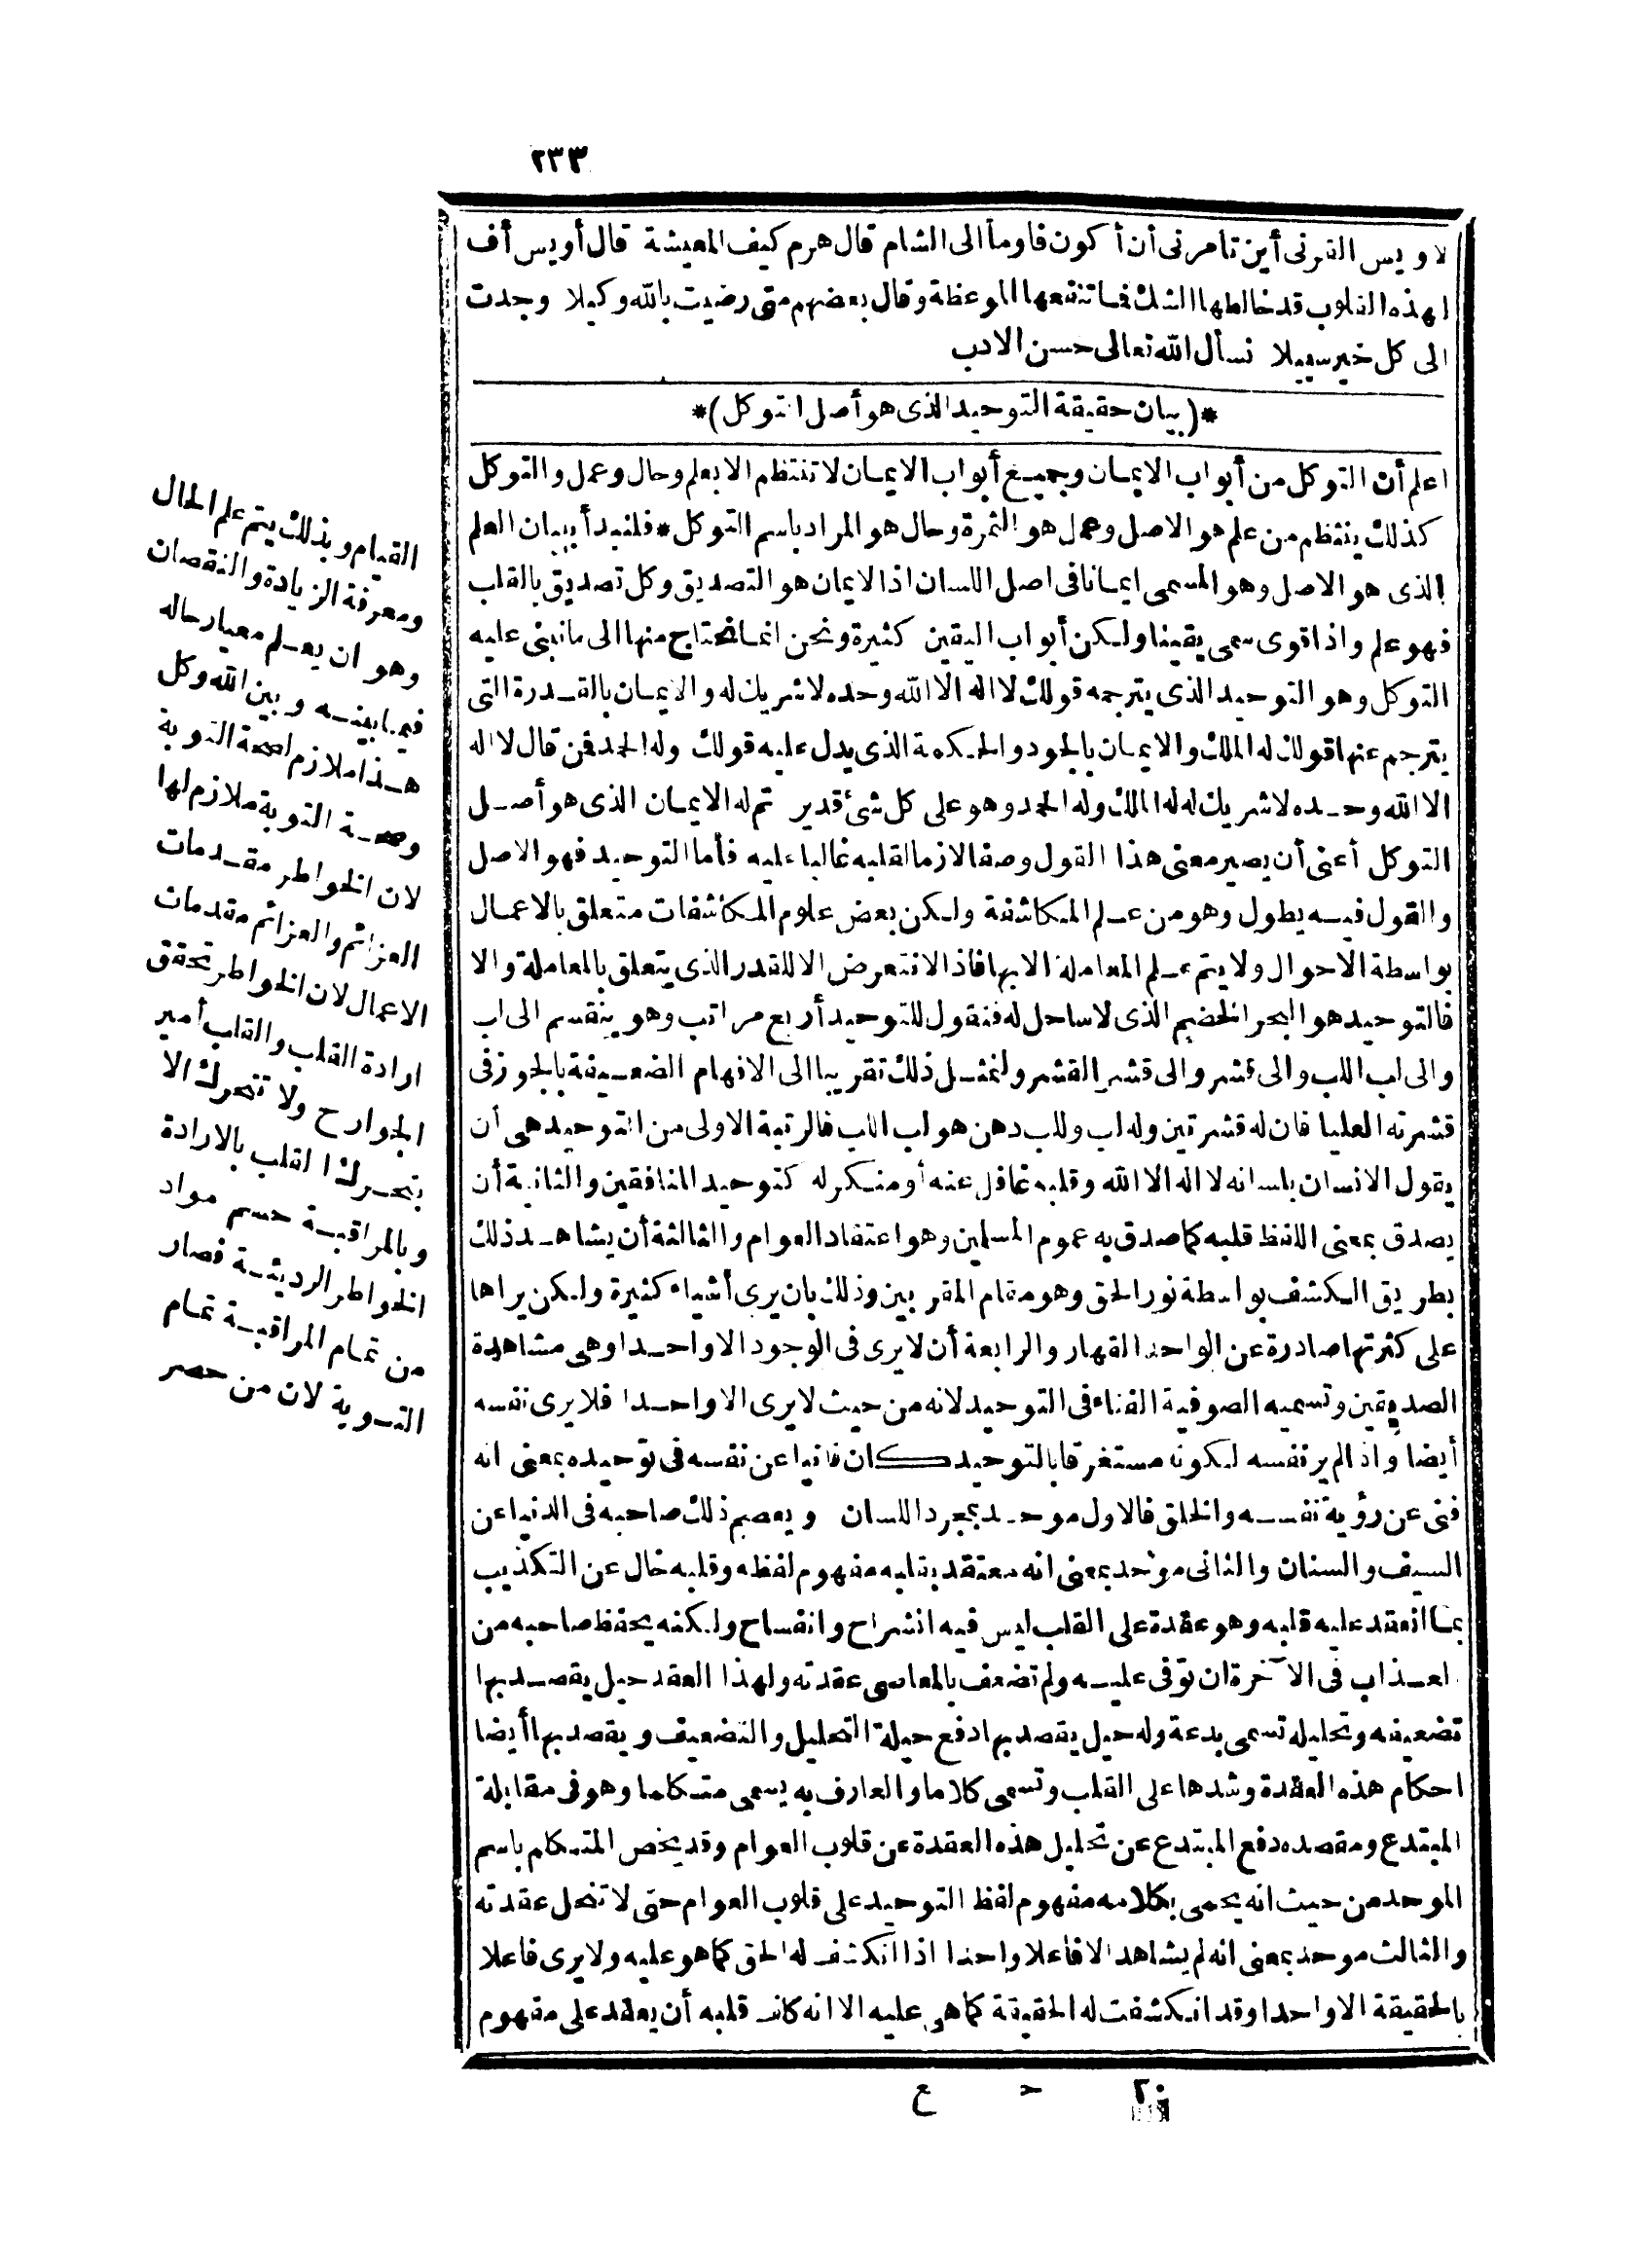 ٢٣٣
لاويس القرنى أين تامرنى أن أكون فاومأ الى الشام قال هرم كيف المعيشة قال أويس أف
لهذه القلوب قد خالطها الشك فما تنفعها الموعظة وقال بعضهم متى رضيت بالله وكيلا وجدت
الى كل خير سبيلا نسأل الله تعالى حسن الادب
*(بيان حقيقة التوحيد الذى هو أصل التوكل)*
اعلم أن التوكل من أبواب الايمان وجميع أبواب الايمان لا تنتظم الا بعلم وحال وعمل والتوكل
كذلك ينتظم من علم هو الاصل وعمل هو الثمرة وحال هو المراد باسم التوكل * فلنبدأ ببيان العلم
الذى هو الاصل وهو المسمى ايمانا فى اصل اللسان اذ الايمان هو التصديق وكل تصديق بالقلب
فهو علم واذا قوى سمى يقينا ولكن أبواب اليقين كثيرة ونحن انما نحتاج منها الى ما نبنى عليه
التوكل وهو التوحيد الذى يترجمه قولك لا اله الا الله وحده لا شريك له والايمان بالقدرة التى
يترجم عنها قولك له الملك والايمان بالجود والحكمة الذى يدل عليه قولك وله الحمد فمن قال لا اله
الا الله وحده لا شريك له له الملك وله الحمد وهو على كل شئ قدير تم له الايمان الذى هو أصل
التوكل أعنى أن يصير معنى هذا القول وصفا لازما لقلبه غالبا عليه فأما التوحيد فهو الاصل
والقول فيه يطول وهو من علم المكاشفة ولكن بعض علوم المكاشفات متعلق بالاعمال
بواسطة الاحوال ولا يتم علم المعاملة الا بها فاذا لا نتعرض الا للقدر الذى يتعلق بالمعاملة والا
فالتوحيد هو البحر الخضم الذى لا ساحل له فنقول للتوحيد أربع مراتب وهو ينقسم الى لب
والى لب اللب والى قشر والى قشر القشر ولنمثل ذلك تقريبا الى الافهام الضعيفة بالجوز فى
قشرته العليا فان له قشرتين وله لب وللب دهن هو لب اللب فالرتبة الاولى من التوحيد هى أن
يقول الانسان بلسانه لا اله الا الله وقلبه غافل عنه أو منكر له كتوحيد المنافقين والثانية أن
يصدق بمعنى اللفظ قلبه كما صدق به عموم المسلمين وهو اعتقاد العوام والثالثة أن يشاهد ذلك
بطريق الكشف بواسطة نور الحق وهو مقام المقربين وذلك بان يرى أشياء كثيرة ولكن يراها
على كثرتها صادرة عن الواحد القهار والرابعة أن لا يرى فى الوجود الا واحدا وهى مشاهدة
الصديقين وتسميه الصوفية الفناء فى التوحيد لانه من حيث لا يرى الا واحدا فلا يرى نفسه
أيضا واذا لم ير نفسه لكونه مستغرقا بالتوحيد كان فانيا عن نفسه فى توحيده بمعنى انه
فنى عن رؤية نفسه والخلق فالاول موحد بمجرد اللسان ويعصم ذلك صاحبه فى الدنيا عن
السيف والسنان والثانى موحد بمعنى انه معتقد بقلبه مفهوم لفظه وقلبه خال عن التكذيب
بما انعقد عليه قلبه وهو عقدة على القلب ليس فيه انشراح وانفساح ولكنه يحفظ صاحبه من
العذاب فى الآخرة ان توفى عليه ولم تضعف بالمعاصى عقدته ولهذا العقد حيل يقصد بها
تضعيفه وتحليله تسمى بدعة وله حيل يقصد بها دفع حيلة التحليل والتضعيف ويقصد بها أيضا
احكام هذه العقدة وشدها على القلب وتسمى كلاما والعارف به يسمى متكلما وهو فى مقابلة
المبتدع ومقصده دفع المبتدع عن تحليل هذه العقدة عن قلوب العوام وقد يخص المتكلم باسم
الموحد من حيث انه يحمى بكلامه مفهوم لفظ التوحيد على قلوب العوام حتى لا تنحل عقدته
والثالث موحد بمعنى انه لم يشاهد الا فاعلا واحدا اذا انكشف له الحق كما هو عليه ولا يرى فاعلا
بالحقيقة الا واحدا وقد انكشفت له الحقيقة كما هى عليه الا انه كلف قلبه أن يعقد على مفهوم
القيام وبذلك يتم علم الحال
ومعرفة الزيادة والنقصان
وهو ان يعلم معيار حاله
فيما بينه وبين الله وكل
هذا ملازم لصحة التوبة
وصحة التوبة ملازم لها
لان الخواطر مقدمات
العزائم والعزائم مقدمات
الاعمال لان الخواطر تحقق
ارادة القلب والقلب أمير
الجوارح ولا تتحرك الا
بتحرك القلب بالارادة
وبالمراقبة حسم مواد
الخواطر الرديئة فصار
من تمام المراقبة تمام
التوبة لان من حصر
٣٠ ح ع